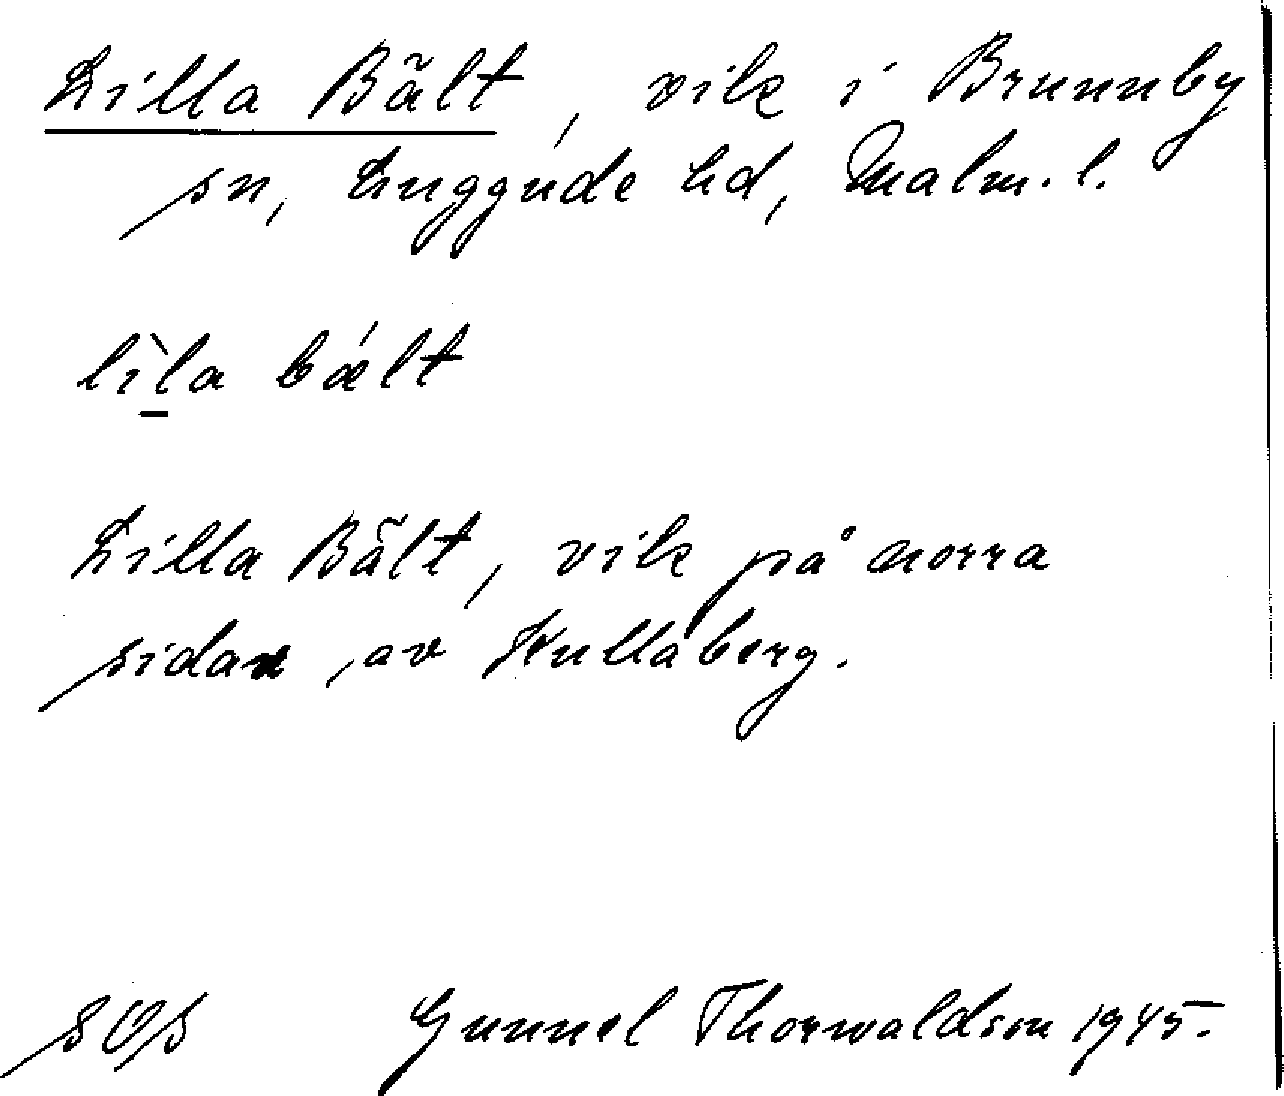 Lilla Bält, vik i Brunnby
sn, Luggude hd, Malm. l.
lìla bǽlt
Lilla Bält, vik på norra
sidan av Kullaberg.
SOS Gunnel Thorwaldson 1945.